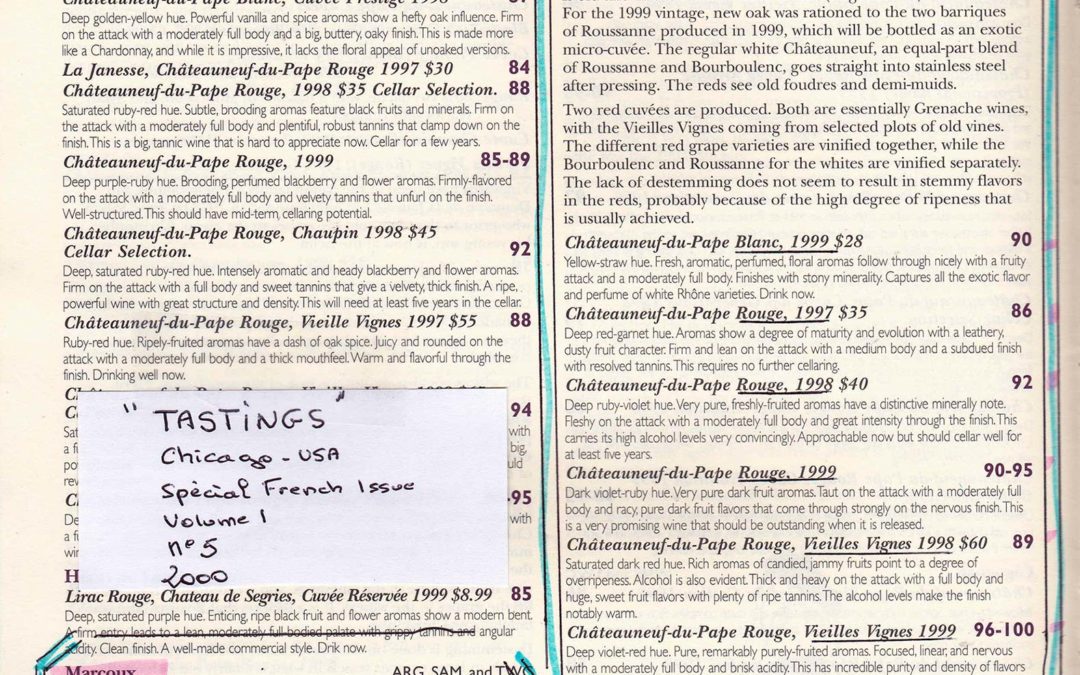 Châteauneuf-du-Pape Blanc, Cuvée Prestige 1998
Deep golden-yellow hue. Powerful vanilla and spice aromas show a hefty oak influence. Firm
on the attack with a moderately full body and a big, buttery, oaky finish. This is made more
like a Chardonnay, and while it is impressive, it lacks the floral appeal of unoaked versions.
La Janesse, Châteauneuf-du-Pape Rouge 1997 $30 84
Châteauneuf-du-Pape Rouge, 1998 $35 Cellar Selection. 88
Saturated ruby-red hue. Subtle, brooding aromas feature black fruits and minerals. Firm on
the attack with a moderately full body and plentiful, robust tannins that clamp down on the
finish. This is a big, tannic wine that is hard to appreciate now. Cellar for a few years.
Châteauneuf-du-Pape Rouge, 1999 85-89
Deep purple-ruby hue. Brooding, perfumed blackberry and flower aromas. Firmly-flavored
on the attack with a moderately full body and velvety tannins that unfurl on the finish.
Well-structured. This should have mid-term, cellaring potential.
Châteauneuf-du-Pape Rouge, Chaupin 1998 $45
Cellar Selection. 92
Deep, saturated ruby-red hue. Intensely aromatic and heady blackberry and flower aromas.
Firm on the attack with a full body and sweet tannins that give a velvety, thick finish. A ripe,
powerful wine with great structure and density. This will need at least five years in the cellar.
Châteauneuf-du-Pape Rouge, Vieille Vignes 1997 $55 88
Ruby-red hue. Ripely-fruited aromas have a dash of oak spice. Juicy and rounded on the
attack with a moderately full body and a thick mouthfeel. Warm and flavorful through the
finish. Drinking well now.
94
Sat with
a fu big,
po uld
rev
-95
De with
a fi
wir
H
"TASTINGS"
Chicago - USA
Spécial French Issue
Volume 1
n° 5
2000
Lirac Rouge, Chateau de Segries, Cuvée Réservée 1999 $8.99 85
Deep, saturated purple hue. Enticing, ripe black fruit and flower aromas show a modern bent.
A firm entry leads to a lean, moderately full-bodied palate with grippy tannins and angular
acidity. Clean finish. A well-made commercial style. Drik now.
Marcoux ARG, SAM, and TWC
For the 1999 vintage, new oak was rationed to the two barriques
of Roussanne produced in 1999, which will be bottled as an exotic
micro-cuvée. The regular white Châteauneuf, an equal-part blend
of Roussanne and Bourboulenc, goes straight into stainless steel
after pressing. The reds see old foudres and demi-muids.
Two red cuvées are produced. Both are essentially Grenache wines,
with the Vieilles Vignes coming from selected plots of old vines.
The different red grape varieties are vinified together, while the
Bourboulenc and Roussanne for the whites are vinified separately.
The lack of destemming does not seem to result in stemmy flavors
in the reds, probably because of the high degree of ripeness that
is usually achieved.
Châteauneuf-du-Pape Blanc, 1999 $28 90
Yellow-straw hue. Fresh, aromatic, perfumed, floral aromas follow through nicely with a fruity
attack and a moderately full body. Finishes with stony minerality. Captures all the exotic flavor
and perfume of white Rhône varieties. Drink now.
Châteauneuf-du-Pape Rouge, 1997 $35 86
Deep red-garnet hue. Aromas show a degree of maturity and evolution with a leathery,
dusty fruit character. Firm and lean on the attack with a medium body and a subdued finish
with resolved tannins. This requires no further cellaring.
Châteauneuf-du-Pape Rouge, 1998 $40 92
Deep ruby-violet hue. Very pure, freshly-fruited aromas have a distinctive minerally note.
Fleshy on the attack with a moderately full body and great intensity through the finish. This
carries its high alcohol levels very convincingly. Approachable now but should cellar well for
at least five years.
Châteauneuf-du-Pape Rouge, 1999 90-95
Dark violet-ruby hue. Very pure dark fruit aromas. Taut on the attack with a moderately full
body and racy, pure dark fruit flavors that come through strongly on the nervous finish. This
is a very promising wine that should be outstanding when it is released.
Châteauneuf-du-Pape Rouge, Vieilles Vignes 1998 $60 89
Saturated dark red hue. Rich aromas of candied, jammy fruits point to a degree of
overripeness. Alcohol is also evident. Thick and heavy on the attack with a full body and
huge, sweet fruit flavors with plenty of ripe tannins. The alcohol levels make the finish
notably warm.
Châteauneuf-du-Pape Rouge, Vieilles Vignes 1999 96-100
Deep violet-red hue. Pure, remarkably purely-fruited aromas. Focused, linear, and nervous
with a moderately full body and brisk acidity. This has incredible purity and density of flavors